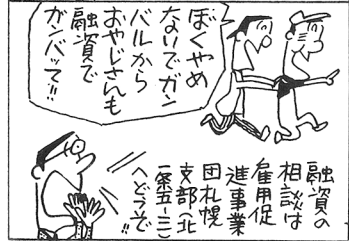 ぼくやめ
ないでガン
バルから
おやじさんも
融資で
ガンバッて!!
融資の
相談は
雇用促
進事業
団札幌
支部(北
一条五-三)
へどうぞ!!